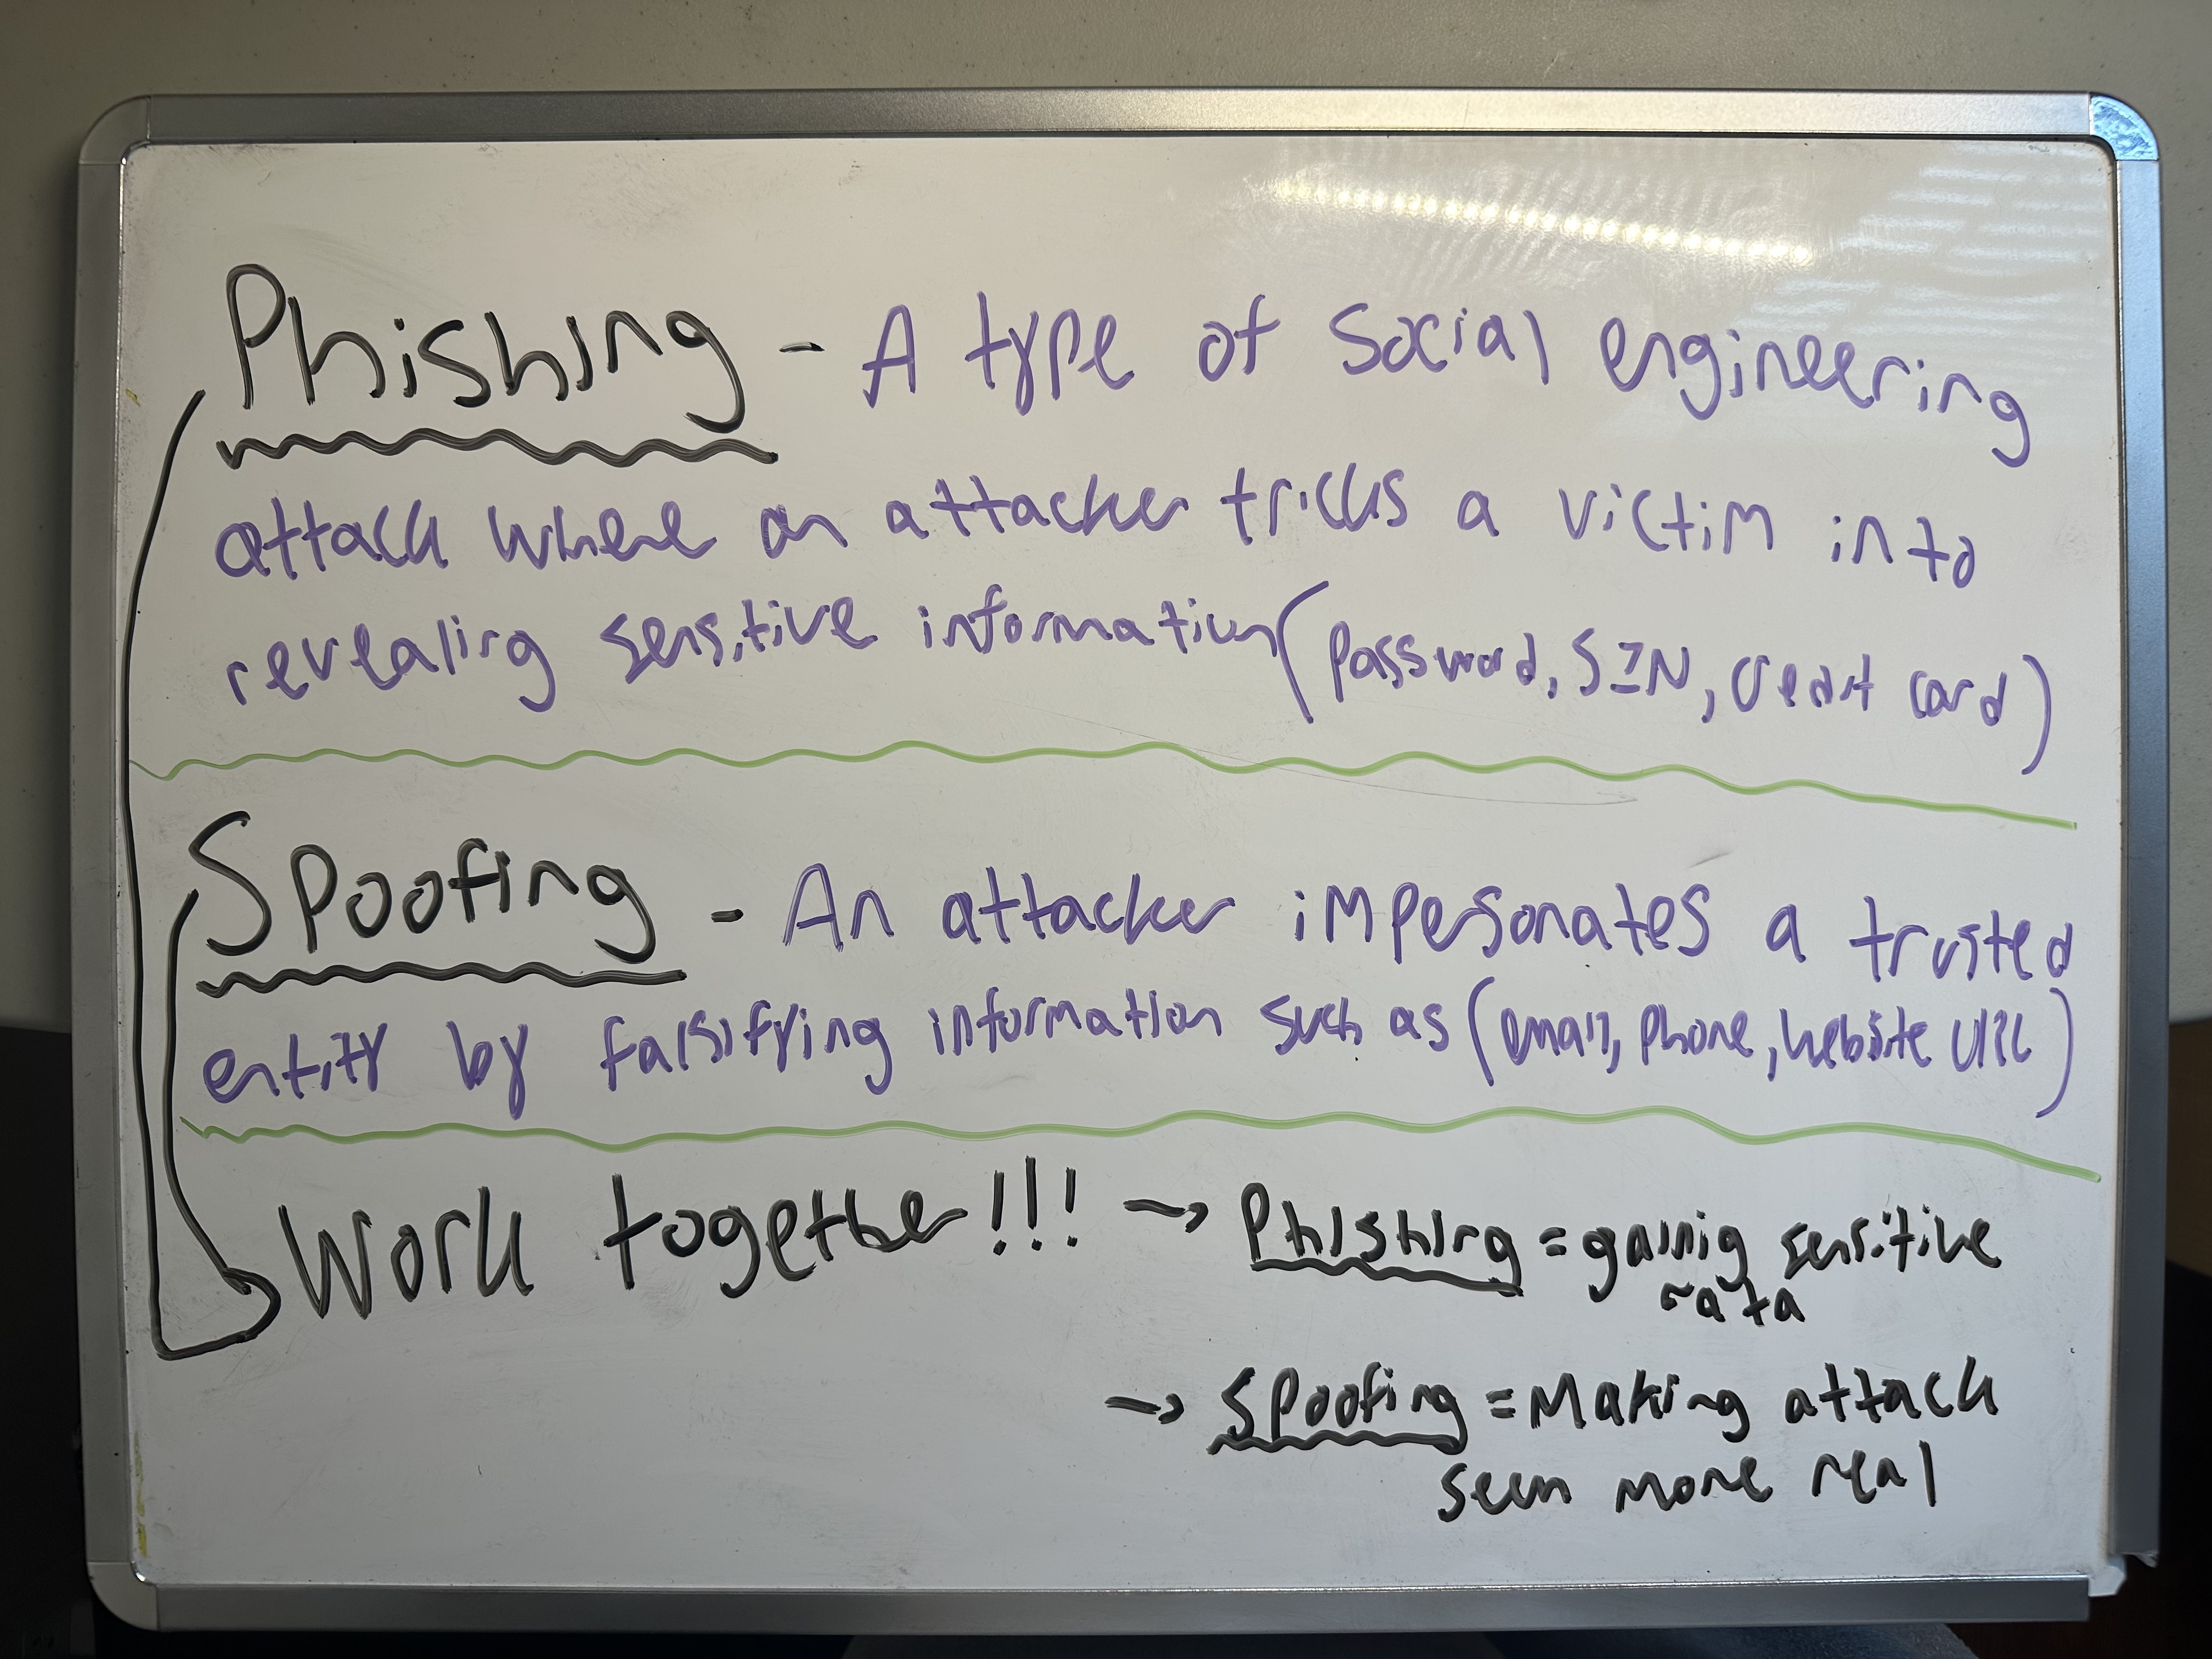 Phishing - A type of social engineering
attack where an attacker tricks a victim into
revealing sensitive information (password, SIN, credit card)
Spoofing - An attacker impersonates a trusted
entity by falsifying information such as (email, phone, website URL)
Work together!!! → Phishing = gainig sensitive
data
→ Spoofing = Making attack
seem more real